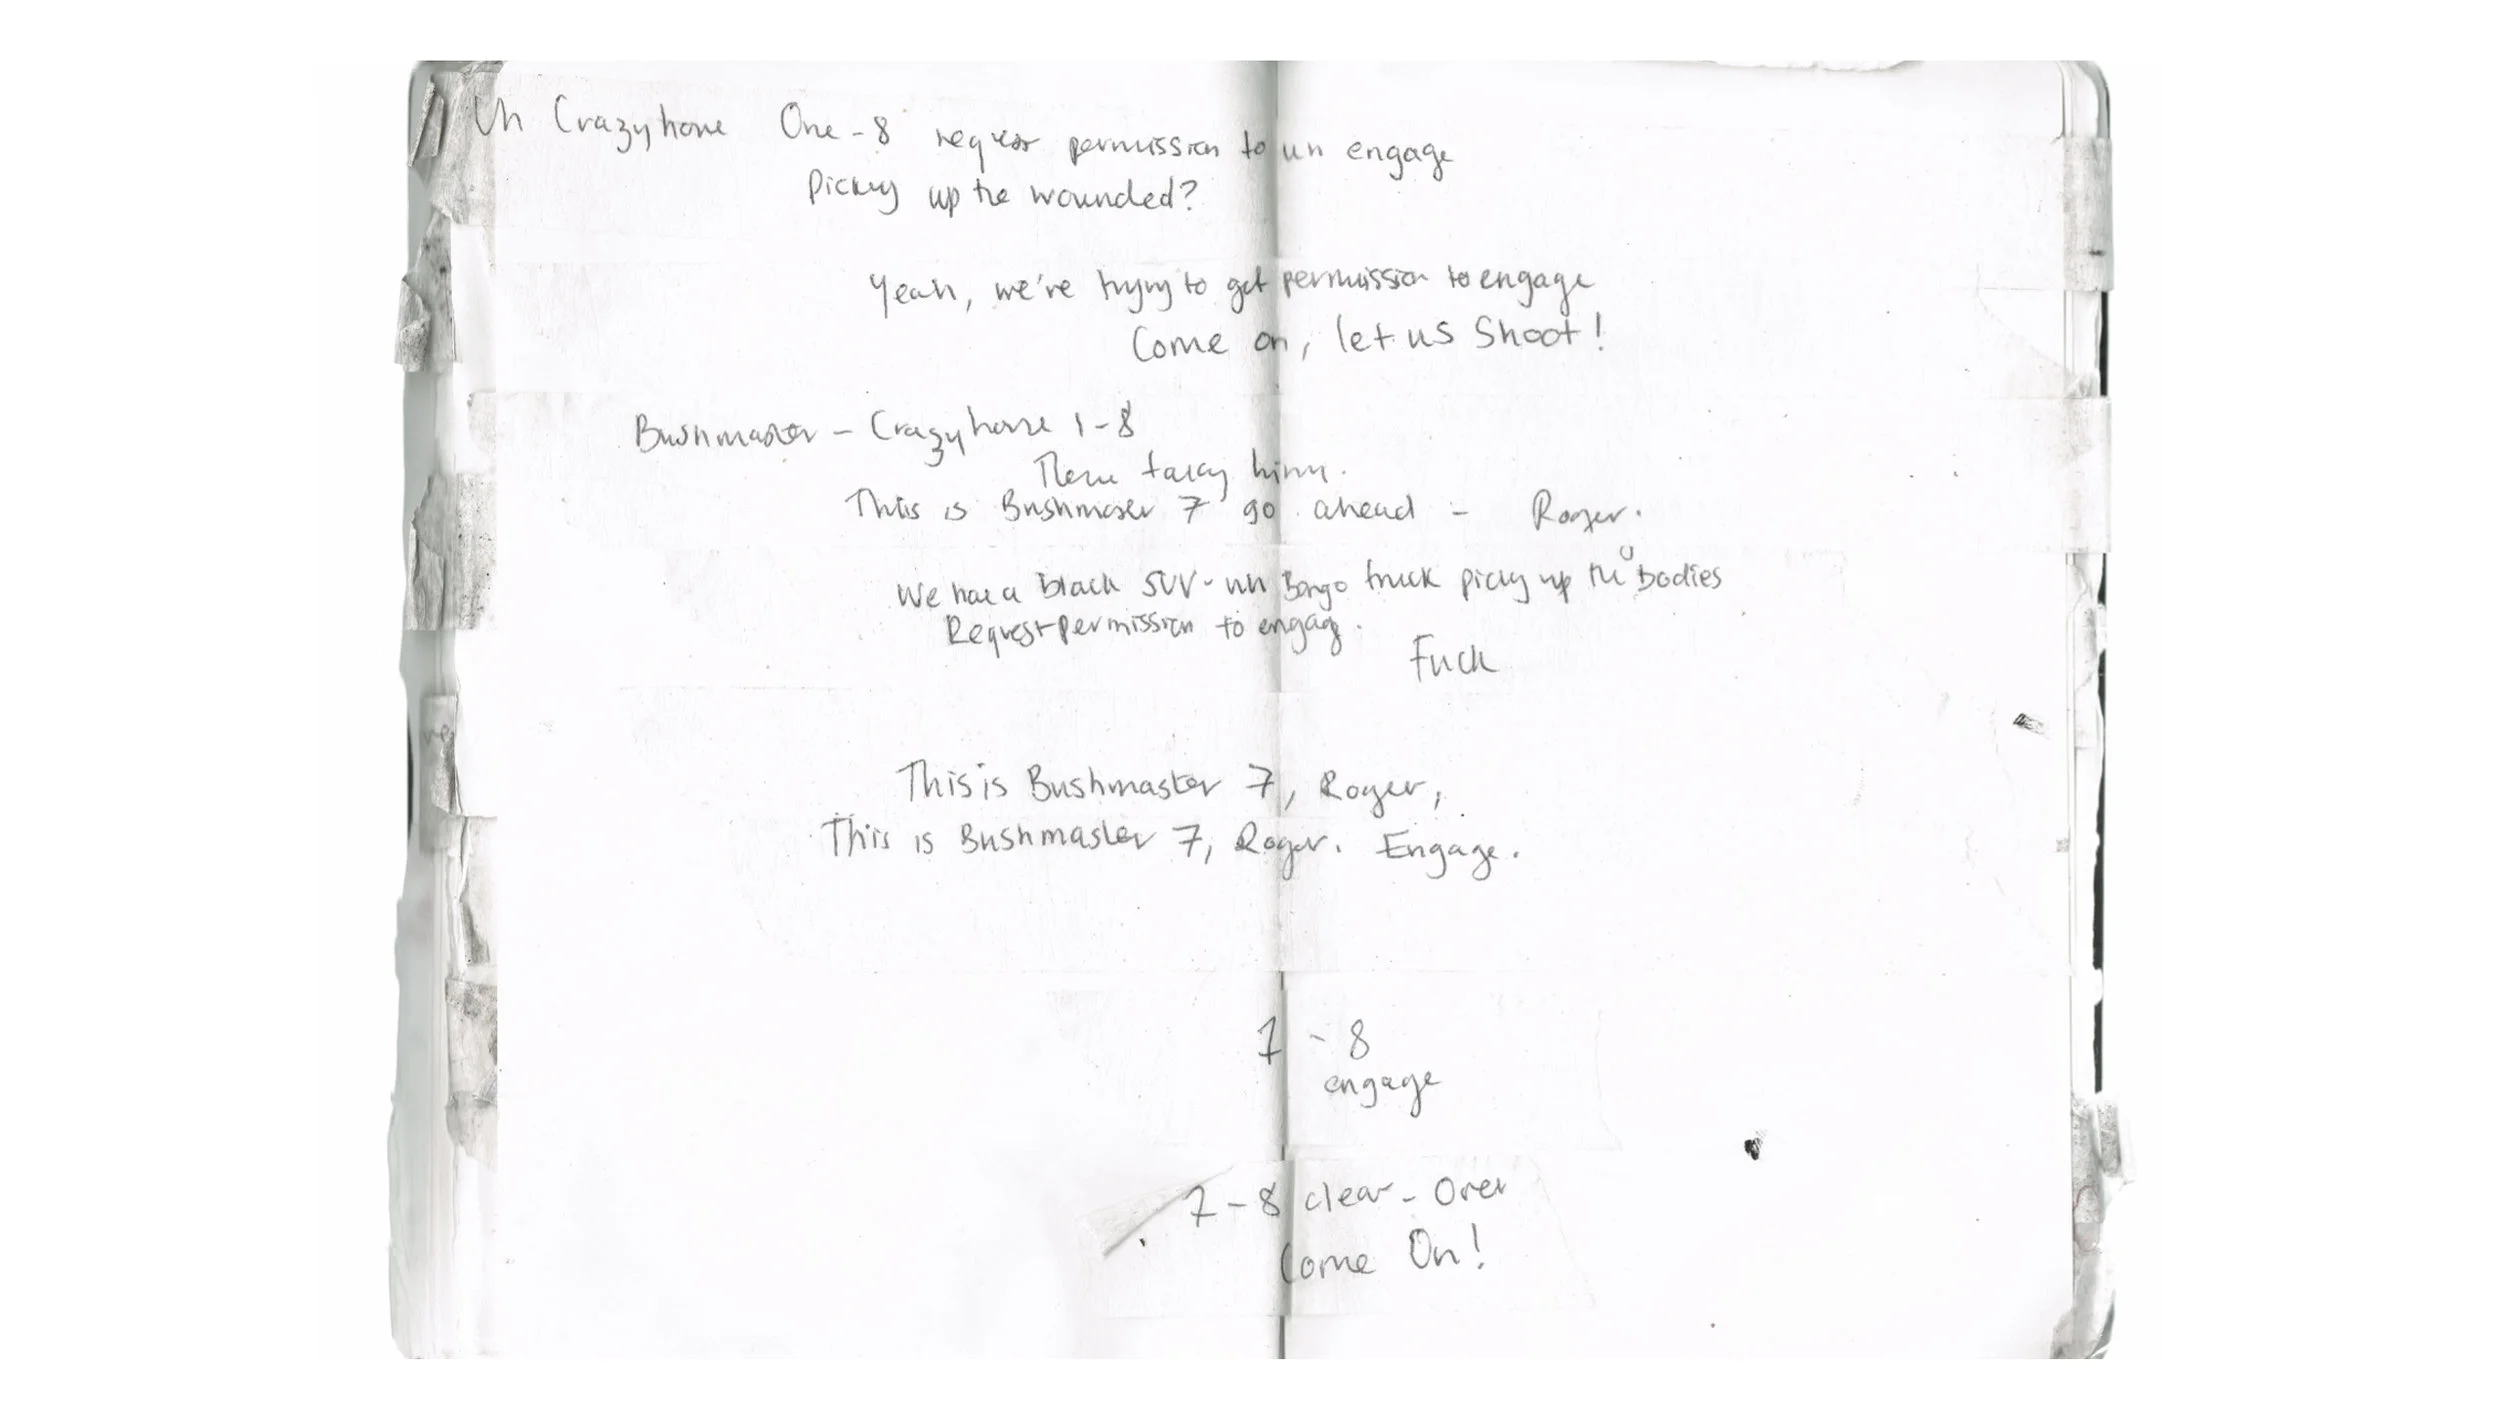 Uh Crazyhorse One-8 request permission to uh engage
Picking up the wounded?
Yeah, we're trying to get permission to engage
Come on, let us Shoot!
Bushmaster - Crazyhorse 1-8
There taking him.
This is Bushmaster 7 go ahead - Roger.
We have a black SUV-uh Bongo truck picking up the bodies
Request permission to engage.
Fuck
This is Bushmaster 7, Roger,
This is Bushmaster 7, Roger. Engage.
1 - 8
engage
1-8 clear - Over
Come On!